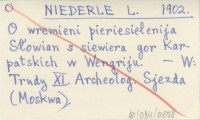 NIEDERLE L. 1902.
O wremieni pieriesielenija
Słowian s siewiera gor Kar-
patskich w Wengriju. - W:
Trudy XI Archeolog. Sjezda
(Moskwa).